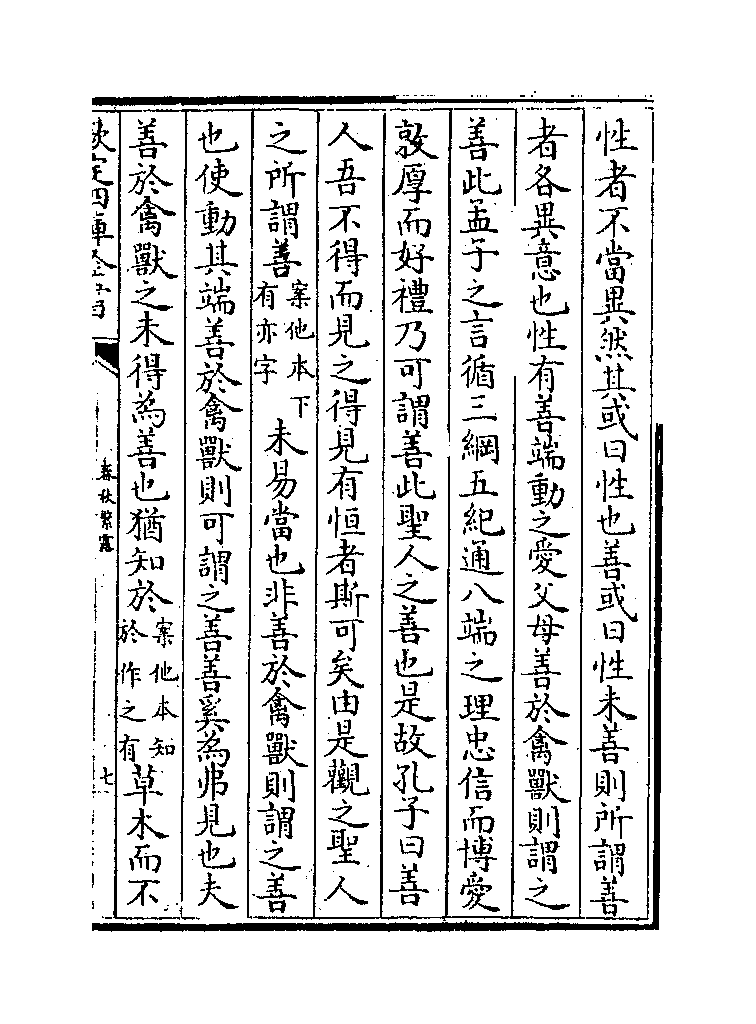 性者不當異然其或曰性也善或曰性未善則所謂善
者各異意也性有善端動之愛父母善於禽獸則謂之
善此孟子之言循三綱五紀通八端之理忠信而博愛
敦厚而好禮乃可謂善此聖人之善也是故孔子曰善
人吾不得而見之得見有恒者斯可矣由是觀之聖人
之所謂善案他本下有亦字未易當也非善於禽獸則謂之善
也使動其端善於禽獸則可謂之善善奚為弗見也夫
善於禽獸之未得為善也猶知於案他本知於作之有草木而不
欽定四庫全書
春秋繁露
七